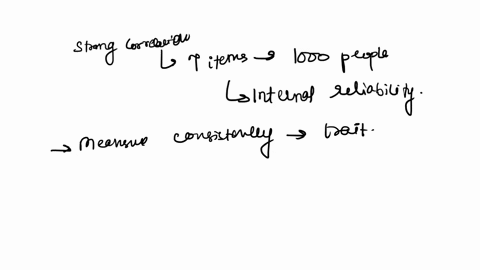 Strong correlation
↳ 7 items → 1000 people
↳ Internal reliability.
→ Measure consistently → trait.